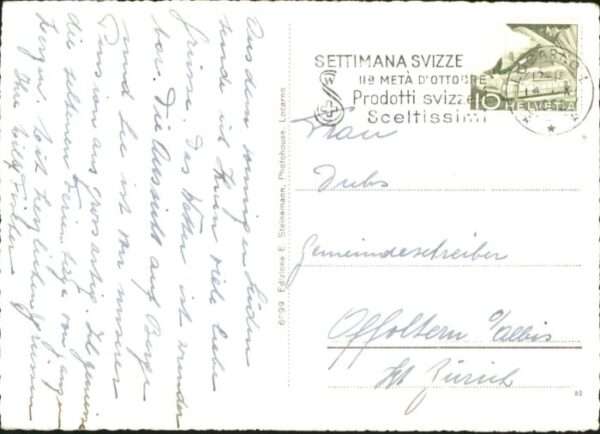 Aus dem sonnigen Süden
sende ich Ihnen viele liebe
Grüsse. Das Wetter ist wunder
bar. Die Aussicht auf Berge
und See ist von unserer
Pension aus grossartig. Ich geniesse
die selten Ferientage von
Herzen. Mit herzlichen Grüssen
Ihre
6099 Edizione E. Steinemann, Photohouse, Locarno
SETTIMANA SVIZZE
IIª METÀ D'OTTOBRE
Prodotti svizze
Sceltissimi
10 HELVETIA
LOCARNO 1
Frau
Dubs
Gemeindeschreiber
Affoltern a/Albis
Kt Zürich